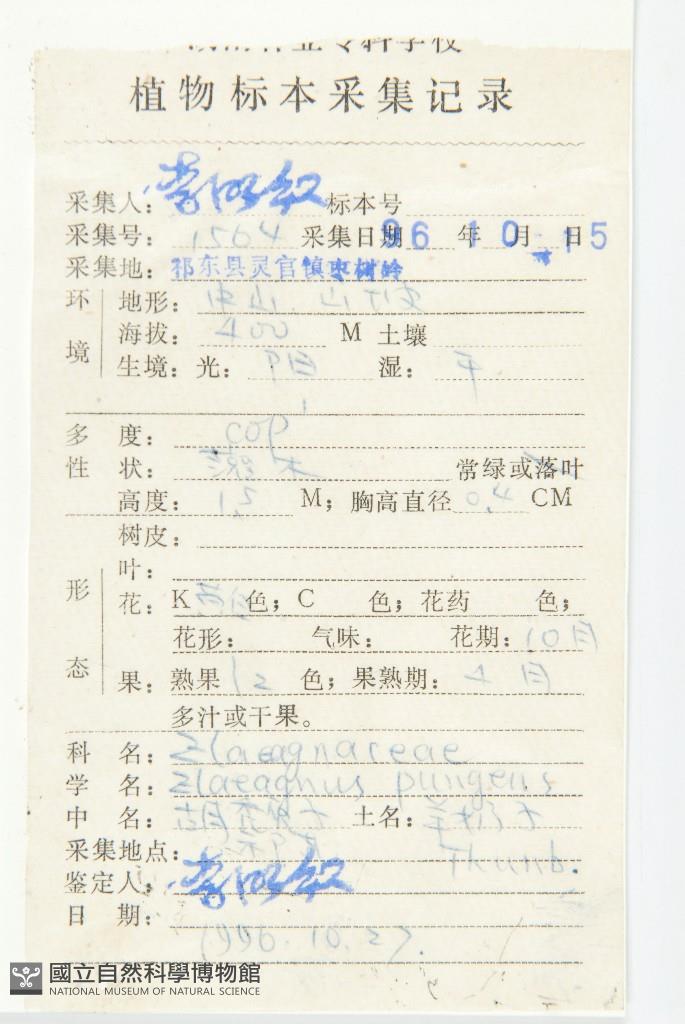 专科学校
植物标本采集记录
采集人: 标本号
采集号: 1564 采集日期 96 年 10 月 15 日
采集地: 祁东县灵官镇枣树岭
环境 地形: 山坡
海拔: 400 M 土壤
生境: 光: 阳 湿: 干
多度: cop1
性状: 灌木 常绿或落叶
高度: 1.5 M; 胸高直径 0.4 CM
树皮:
形态 叶:
花: K 色; C 色; 花药 色;
花形: 气味: 花期: 10月
果: 熟果 红 色; 果熟期: 4月
多汁或干果。
科名: Elaeagnareae
学名: Elaeagnus pungens
中名: 胡颓子 土名: 羊奶子
采集地点: 祁东 Thunb.
鉴定人:
日期:
1996.10.27.
國立自然科學博物館
NATIONAL MUSEUM OF NATURAL SCIENCE